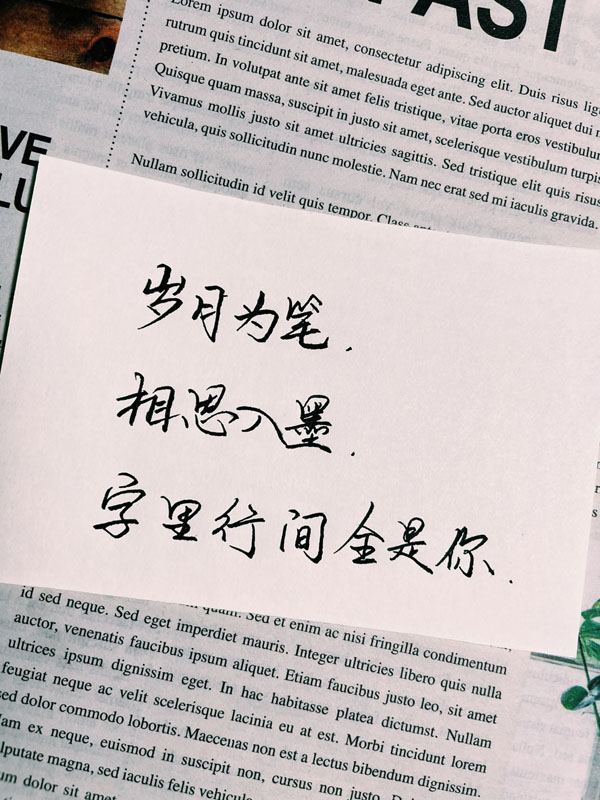 AST
Lorem ipsum dolor sit amet, consectetur adipiscing elit. Duis risus
rutrum quis tincidunt sit amet, malesuada eget ante. Sed auctor aliquet dui
pretium. In volutpat ante sit amet felis tristique, vitae porta eros vestibulum
Quisque quam massa, suscipit in justo sit amet, scelerisque vestibulum turpis
Vivamus mollis justo sit amet ultricies sagittis. Sed tristique elit quis risus
vehicula, quis sollicitudin nunc molestie. Nam nec erat sed mi iaculis gravida.
Nullam sollicitudin id velit quis tempor. Class
VE
LU
岁月为笔.
相思入墨.
字里行间全是你.
id sed neque. Sed eget imperdiet mauris. Integer ultricies libero quis nulla
quam. Sed et enim ac nisi fringilla condimentum
auctor, venenatis faucibus ipsum aliquet. Etiam faucibus justo leo, sit amet
ultrices ipsum dignissim eget. In hac habitasse platea dictumst. Nullam
feugiat neque ac velit scelerisque lacinia eu at est. Morbi tincidunt lorem
sed dolor commodo lobortis. Maecenas non est a lectus bibendum dignissim.
ex neque, euismod in suscipit non, cursus non justo.
vulputate magna, sed iaculis felis
dolor sit amet